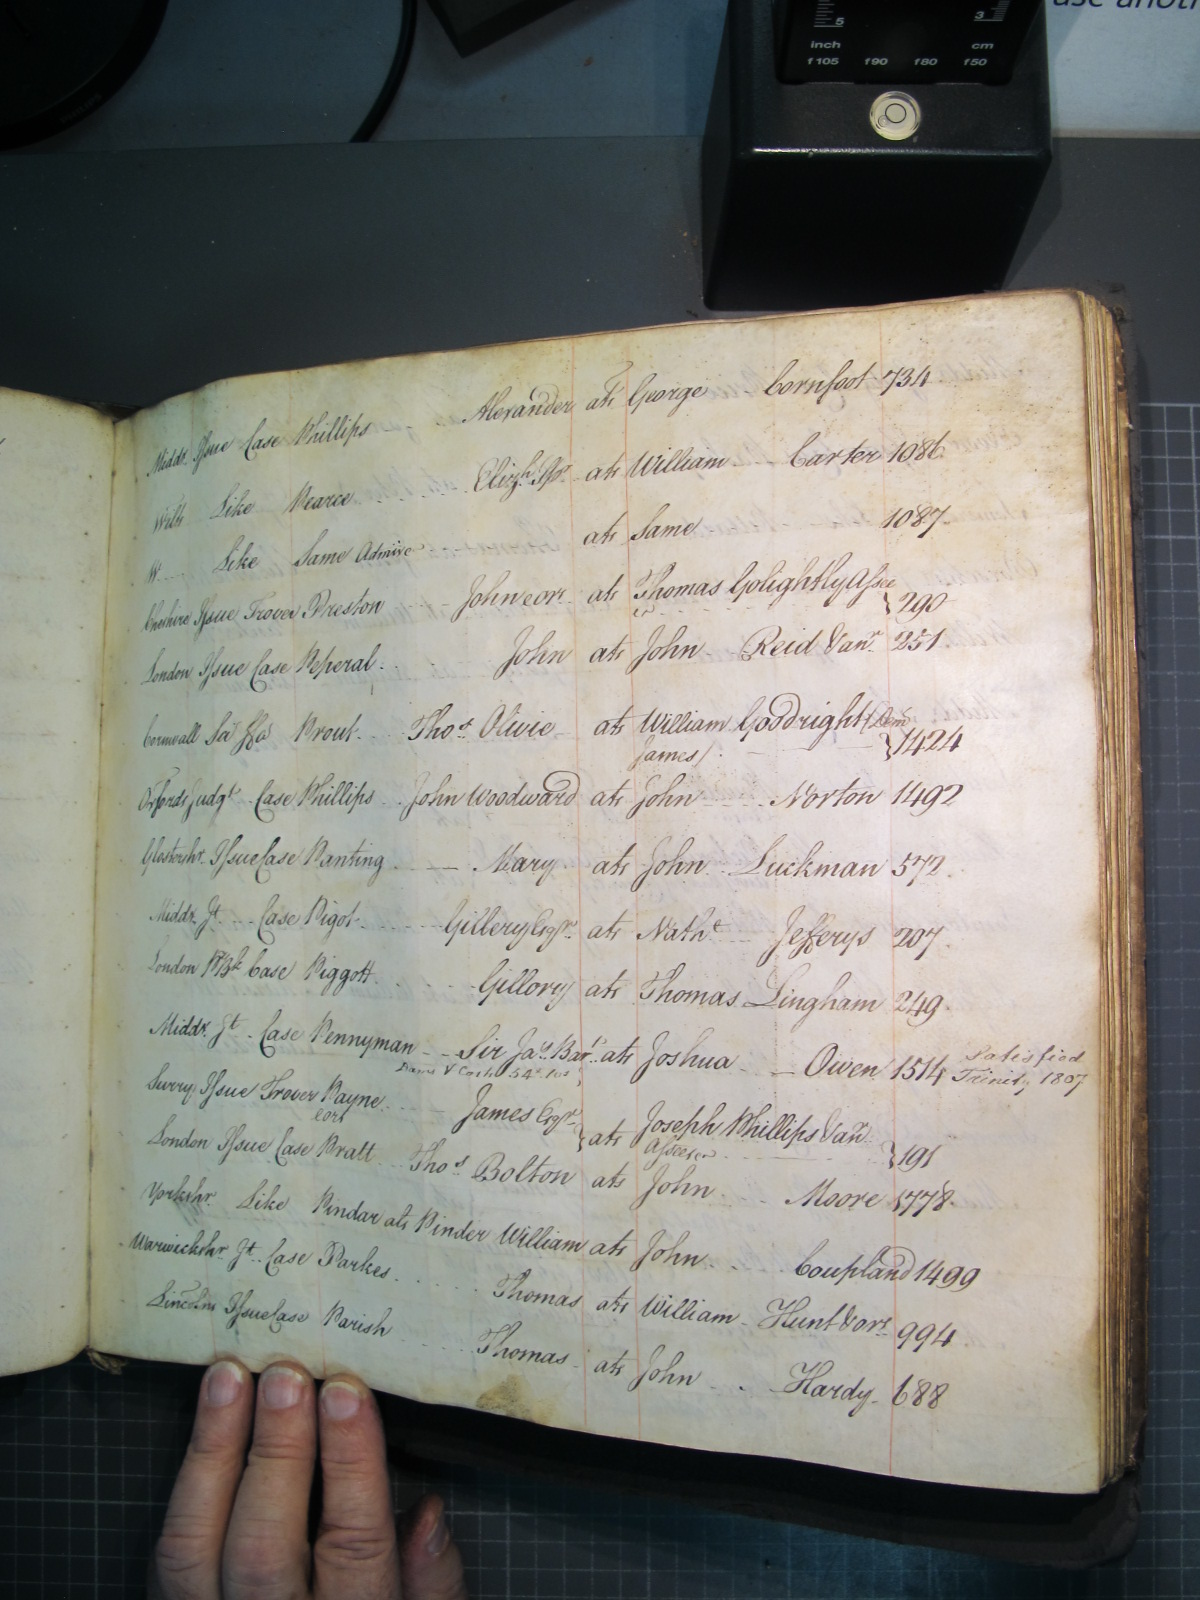 use anot
5 3
inch cm
f105 f90 f80 f50
Middx Issue Case Phillips Alexander ats George Cornfoot 734
Wilts Like Pearce Elizh Spr ats William Carter 1086
W Like Same Admixe ats Same 1087
Cheshire Issue Trover Preston John eors ats Thomas Golightly Assee
290
London Issue Case Peperal John ats John Reid & anr 251
Cornwall Prout Thos Olivie ats William Goodright (Dem
James) 1424
Oxfords Judgt Case Phillips John Woodward ats John Norton 1492
Glostershr Issue Case Panting Mary ats John Luckman 572
Middx Jt Case Pigot Gillery Esqr ats Nathl Jefferys 207
London Case Piggott Gillory ats Thomas Lingham 249
Middx Jt Case Pennyman Sir Jas Bart ats Joshua Owen 1514 Satisfied
Trinity 1807
Surry Issue Trover Payne James Esqr ats Joseph Phillips & an
eors Assees 191
London Issue Case Pratt Thos Bolton ats John Moore 1778
Yorkshr Like Pindar als Pinder William ats John Coupland 1499
Warwickshr Jt Case Parkes Thomas ats William Hunt & ors 994
Lincolns Issue Case Parish Thomas ats John Hardy 688